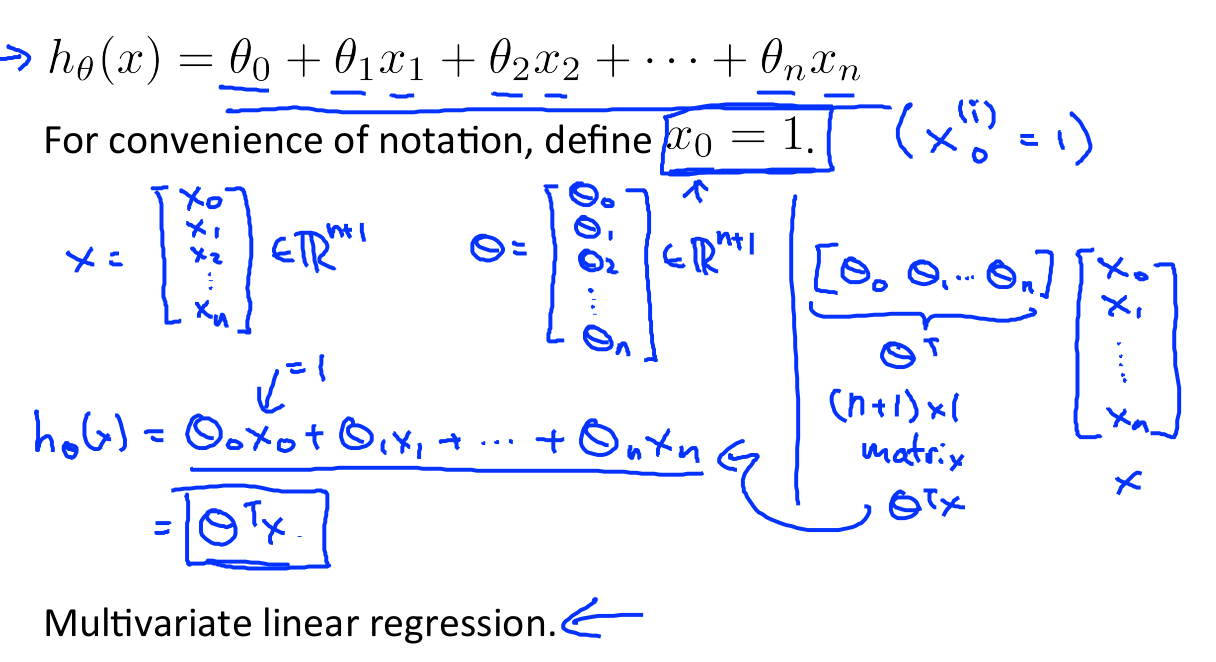 → hθ(x) = θ₀ + θ₁x₁ + θ₂x₂ + ··· + θₙxₙ
For convenience of notation, define x₀ = 1. (x₀⁽ⁱ⁾ = 1)
x = [x₀ x₁ x₂ ⋮ xₙ] ∈ ℝⁿ⁺¹ θ = [θ₀ θ₁ θ₂ ⋮ θₙ] ∈ ℝⁿ⁺¹
[θ₀ θ₁ ... θₙ] [x₀ x₁ ⋮ xₙ]
θᵀ
(n+1)×1
matrix
x
θᵀx
= 1
hθ(x) = θ₀x₀ + θ₁x₁ + ··· + θₙxₙ
= θᵀx.
Multivariate linear regression. ←